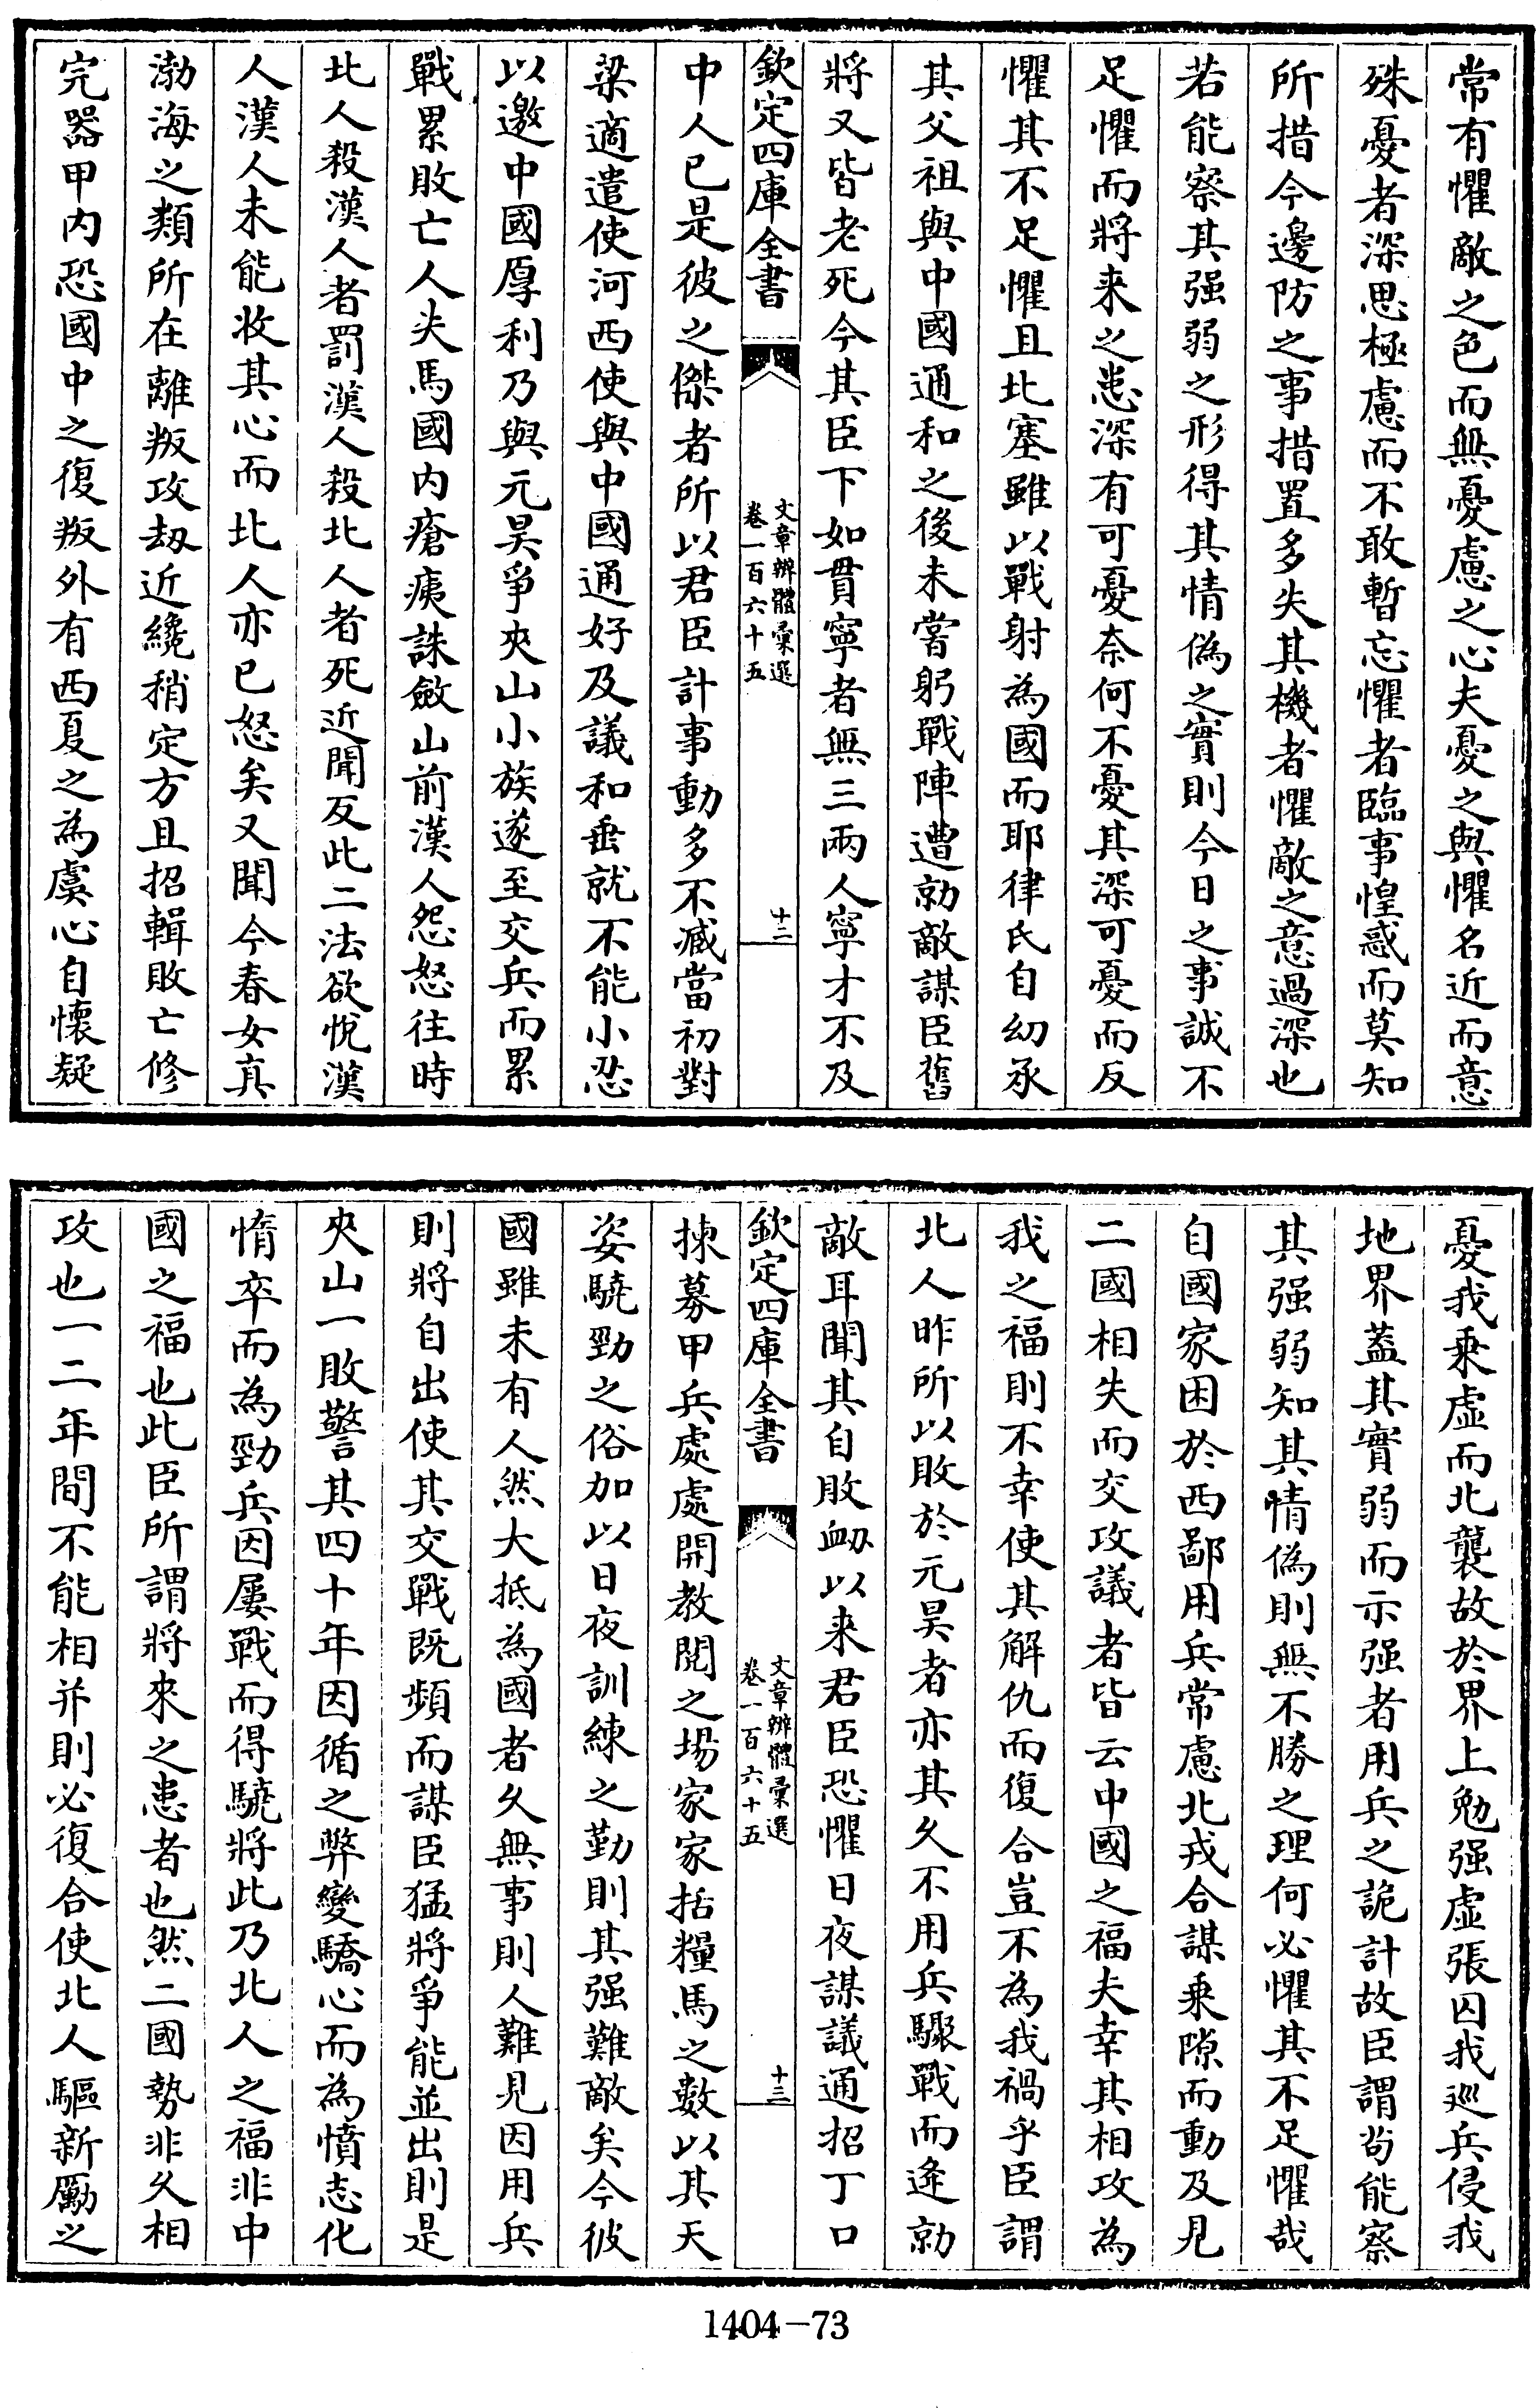 常有懼敵之色而無憂慮之心夫憂之與懼名近而意
殊憂者深思極慮而不敢暫忘懼者臨事惶惑而莫知
所措今邊防之事措置多失其機者懼敵之意過深也
若能察其强弱之形得其情偽之實則今日之事誠不
足懼而將来之患深有可憂奈何不憂其深可憂而反
懼其不足懼且北塞雖以戰射為國而耶律氏自幼承
其父祖與中國通和之後未嘗躬戰陣遭勍敵謀臣舊
將又皆老死今其臣下如貫寧者無三兩人寧才不及
欽定四庫全書
文章辨體彙選
卷一百六十五
十二
中人已是彼之傑者所以君臣計事動多不臧當初對
梁適遣使河西使與中國通好及議和垂就不能小忍
以邀中國厚利乃與元昊爭夾山小族遂至交兵而累
戰累敗亡人失馬國内瘡痍誅斂山前漢人怨怒往時
北人殺漢人者罰漢人殺北人者死近聞反此二法欲悅漢
人漢人未能收其心而北人亦已怒矣又聞今春女真
渤海之類所在離叛攻刼近纔稍定方且招輯敗亡修
完器甲内恐國中之復叛外有西夏之為虞心自懷疑
憂我乗虛而北襲故於界上勉强虛張囚我巡兵侵我
地界蓋其實弱而示强者用兵之詭計故臣謂苟能察
其强弱知其情偽則無不勝之理何必懼其不足懼哉
自國家困於西鄙用兵常慮北戎合謀乗隙而動及見
二國相失而交攻議者皆云中國之福夫幸其相攻為
我之福則不幸使其解仇而復合豈不為我禍乎臣謂
北人昨所以敗於元昊者亦其久不用兵驟戰而逢勍
敵耳聞其自敗衂以来君臣恐懼日夜謀議通招丁口
欽定四庫全書
文章辨體彙選
卷一百六十五
十三
揀募甲兵處處開教閱之場家家括糧馬之數以其天
姿驍勁之俗加以日夜訓練之勤則其强難敵矣今彼
國雖未有人然大抵為國者久無事則人難見因用兵
則將自出使其交戰既頻而謀臣猛將爭能並出則是
夾山一敗警其四十年因循之弊變驕心而為憤志化
惰卒而為勁兵因屢戰而得驍將此乃北人之福非中
國之福也此臣所謂將來之患者也然二國勢非久相
攻也一二年間不能相并則必復合使北人驅新勵之
1404－73